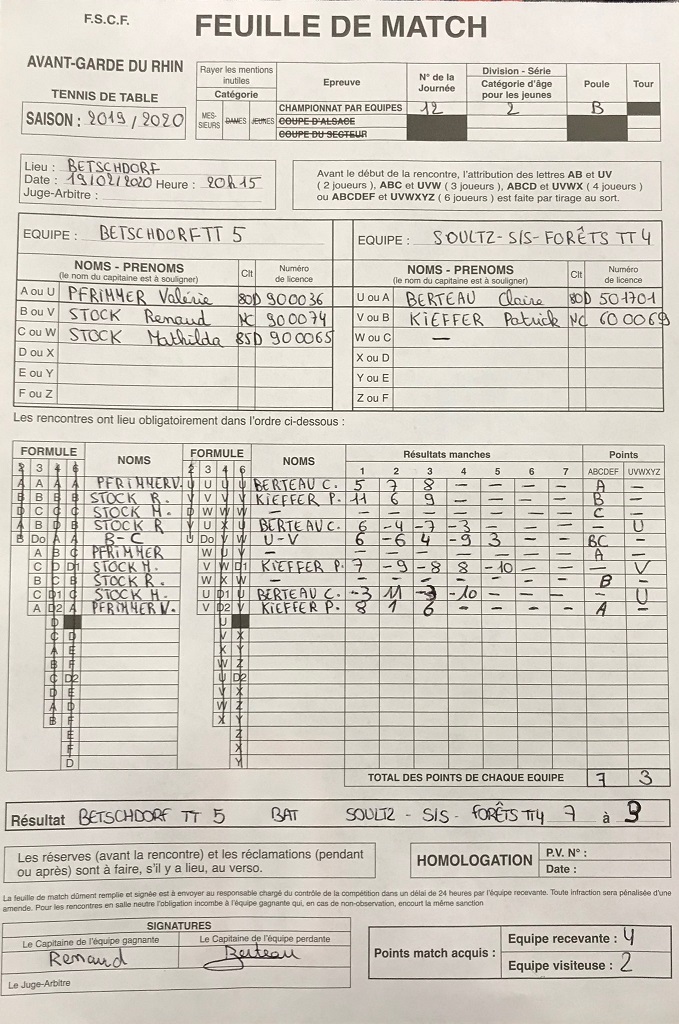 F.S.C.F.
FEUILLE DE MATCH
AVANT-GARDE DU RHIN
TENNIS DE TABLE
SAISON : 2019 / 2020
Rayer les mentions inutiles
Catégorie
MES-SIEURS DAMES JEUNES
Epreuve
N° de la Journée
Division - Série
Catégorie d'âge pour les jeunes
Poule
Tour
CHAMPIONNAT PAR EQUIPES 12 2 B
COUPE D'ALSACE
COUPE DU SECTEUR
Lieu : BETSCHDORF
Date : 19/02/2020 Heure : 20h15
Juge-Arbitre :
Avant le début de la rencontre, l'attribution des lettres AB et UV
( 2 joueurs ), ABC et UVW ( 3 joueurs ), ABCD et UVWX ( 4 joueurs )
ou ABCDEF et UVWXYZ ( 6 joueurs ) est faite par tirage au sort.
EQUIPE : BETSCHDORF TT 5
EQUIPE : SOULTZ-S/S-FORÊTS TT 4
NOMS - PRENOMS
(le nom du capitaine est à souligner)
Clt
Numéro de licence
A ou U PFRIMMER Valérie 80D 900036
B ou V STOCK Renaud NC 900074
C ou W STOCK Mathilda 85D 900065
D ou X
E ou Y
F ou Z
NOMS - PRENOMS
(le nom du capitaine est à souligner)
Clt
Numéro de licence
U ou A BERTEAU Claire 80D 501701
V ou B KIEFFER Patrick NC 600069
W ou C —
X ou D
Y ou E
Z ou F
Les rencontres ont lieu obligatoirement dans l'ordre ci-dessous :
FORMULE NOMS FORMULE NOMS Résultats manches Points
2 3 4 6 2 3 4 6 1 2 3 4 5 6 7 ABCDEF UVWXYZ
A A A A PFRIMMER V. U U U U BERTEAU C. 5 7 8 – – – – A –
B B B B STOCK R. V V V V KIEFFER P. 11 6 9 – – – – B –
D C C C STOCK M. D W W W – – – – – – – – C –
A B D B STOCK R V U X U BERTEAU C. 6 -4 -7 -3 – – – – U
B Do A A B-C U Do V V U-V 6 -6 4 -9 3 – – BC –
A B C PFRIMMER W U Y – – – – – – – – A –
C C D1 STOCK M. V W D1 KIEFFER P. 7 -9 -8 8 -10 – – – V
B C B STOCK R. W X W – – – – – – – – B –
C D1 C STOCK M. U D1 U BERTEAU C. -3 11 -3 -10 – – – – U
A D2 A PFRIMMER V. V D2 V KIEFFER P. 8 1 6 – – – – A –
D U
C D V X
A E X Y
B F W Z
C D2 U D2
D E V X
A D W Z
B F X Y
E Z
F X
D Y
TOTAL DES POINTS DE CHAQUE EQUIPE 7 3
Résultat BETSCHDORF TT 5 BAT SOULTZ - S/S - FORÊTS TT4 7 à 3
Les réserves (avant la rencontre) et les réclamations (pendant
ou après) sont à faire, s'il y a lieu, au verso.
HOMOLOGATION
P.V. N° :
Date :
La feuille de match dûment remplie et signée est à envoyer au responsable chargé du contrôle de la compétition dans un délai de 24 heures par l'équipe recevante. Toute infraction sera pénalisée d'une
amende. Pour les rencontres en salle neutre l'obligation incombe à l'équipe gagnante qui, en cas de non-observation, encourt la même sanction
SIGNATURES
Le Capitaine de l'équipe gagnante
Le Capitaine de l'équipe perdante
Renaud
Berteau
Le Juge-Arbitre
Points match acquis :
Equipe recevante : 4
Equipe visiteuse : 2